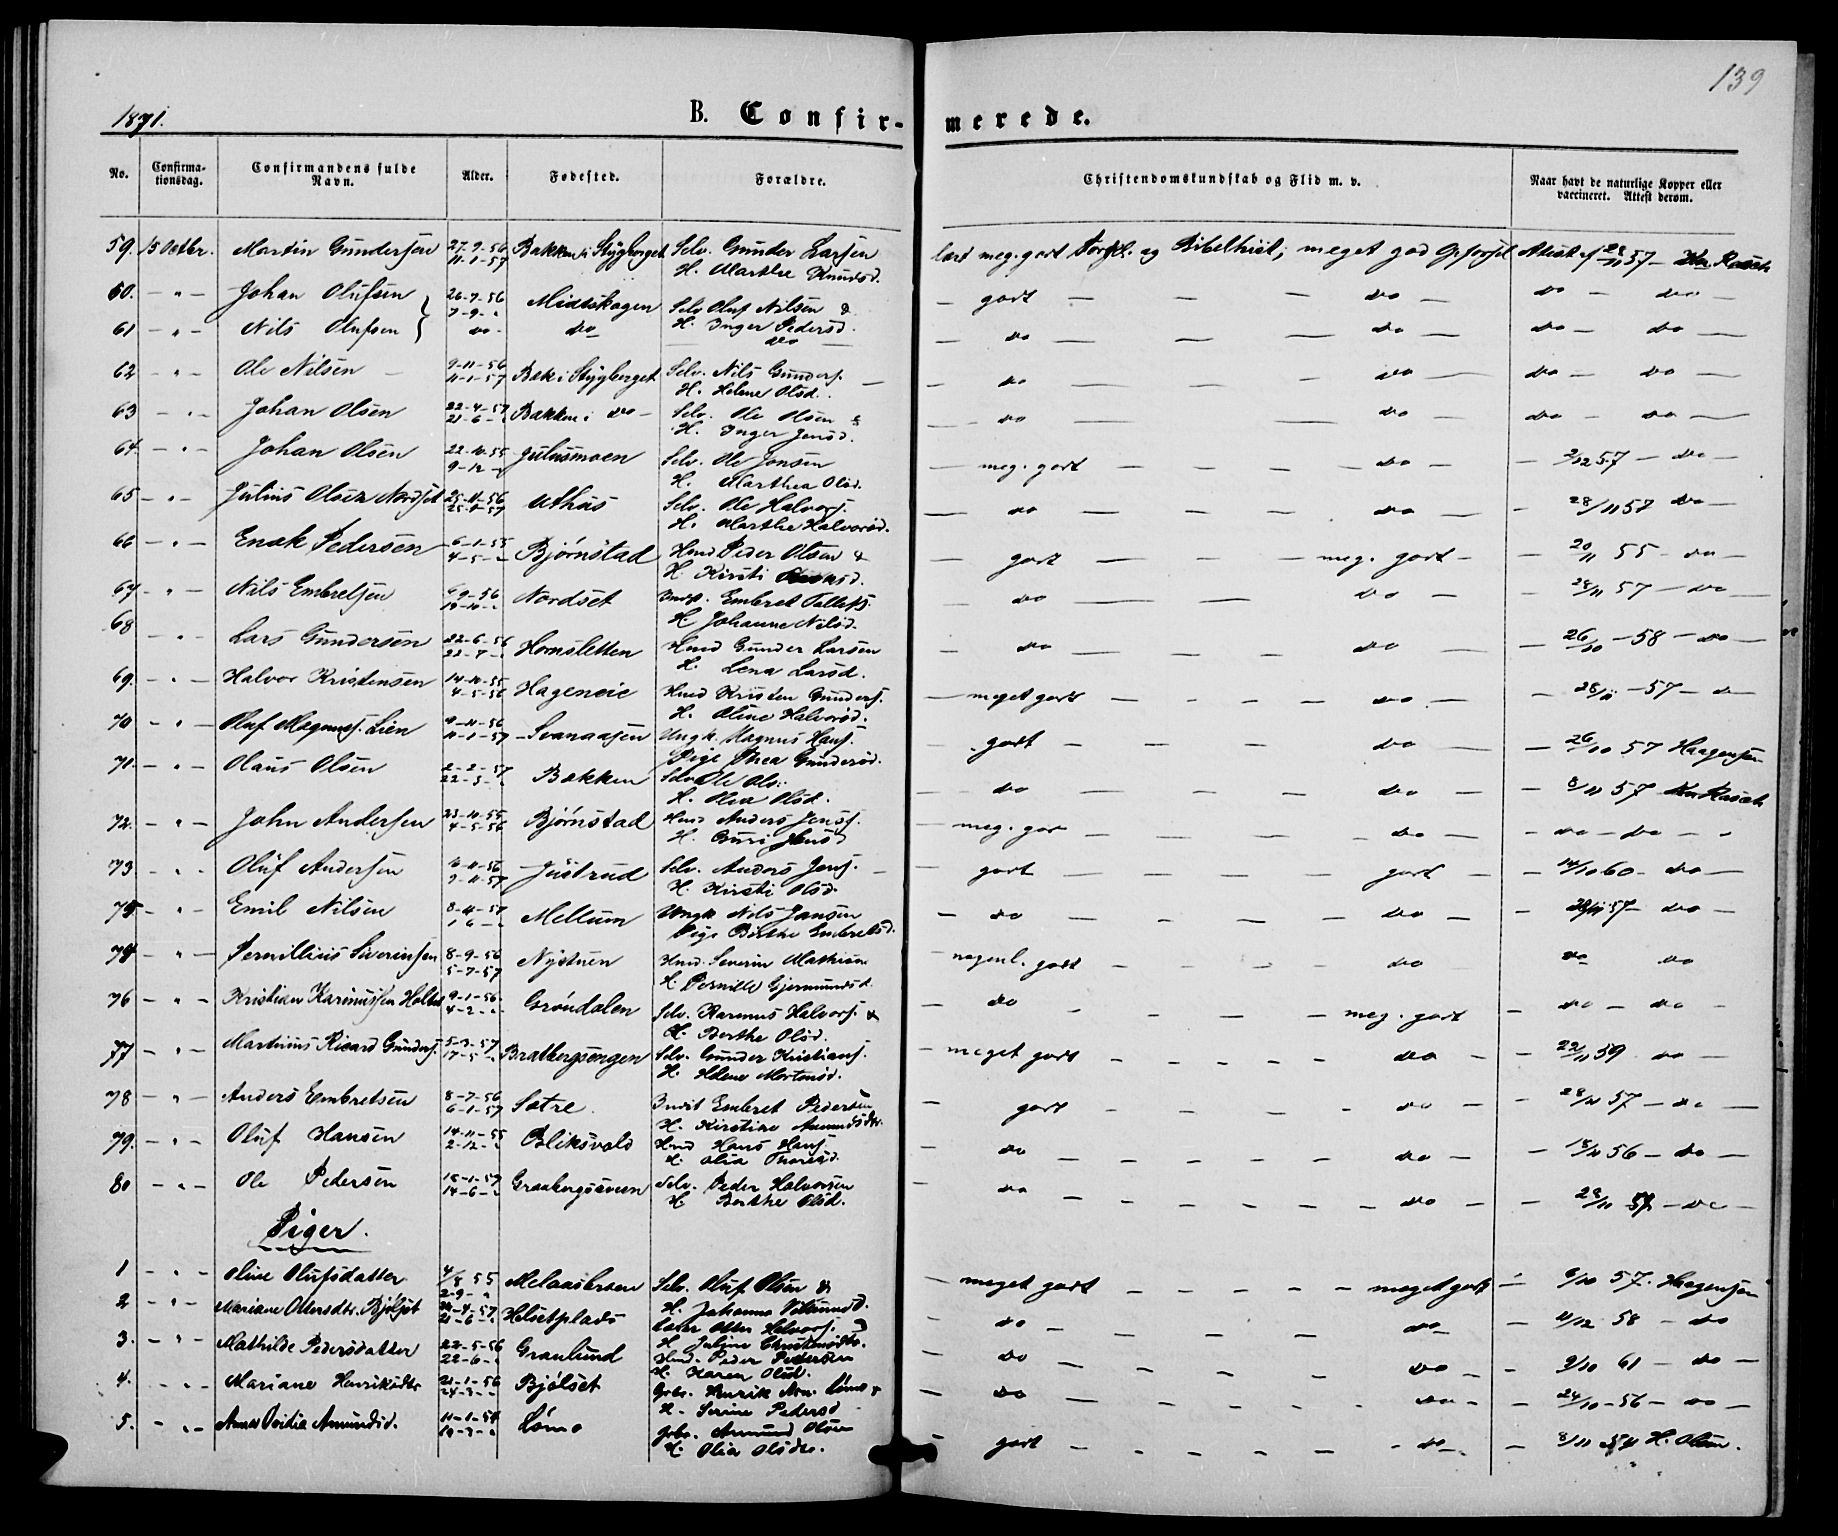 139
1871.
B. Confir- merede.
No. Confirma-tionsdag. Confirmandens fulde Navn. Alder. Fødested. Forældre. Christendomskundskab og Flid m. v. Naar havt de naturlige Kopper eller vaccineret. Attest derom.
59. 15 Octbr. Martin Gundersen 27-9-56 Bakken i Stygberget Selv. Gunder Larsen læst meg. godt Forkl. og Bibelhist; meget god Opførsel Attest af 57 - Rasch
11-1-57 H. Marthe Knudsd.
60. - " - Johan Olufsen 26-7-56 Midtskogen Selv Oluf Nilsen & - godt - - - do - do - do -
7-9- " H. Inger Pedersd.
61 - " - Nils Olufsen do- do do - do - - - do - do - do -
62 - " - Ole Nilsen 9-11-56 Bak. i Stygberget Selv. Nils Gunders. - do - - - do - do - do -
11-1-57 H. Helene Olsd.
63 - " - Johan Olsen 22-4-57 Bakken i do - Selv. Ole Olsen & - do - - do - do - do -
21-6- " H. Inger Jensd.
64 - " - Johan Olsen 22-10-55 Julusmoen Selv. Ole Jonsen - meg. godt - - - - do - - 2/12 57 - do -
9-12- " H. Marthea Olsd.
65 - " - Julius Olsen Nordset 25-11-56 Uthus Selv. Ole Halvors. - do - - - do - - 28/11 57 do -
H. Marthe Halvorsd.
66 - " - Enok Pedersen 6-1-55 Bjørnstad Hmd Peder Olsen & - godt - - - meg. godt - - 20/11 55 - do -
4-5- " H. Kirsti
67 - " - Nils Embretsen 6-9-56 Nordset Indst. Embret Tollefs. - do - - do - 28/11 57 - do -
19-10- " H. Johanne Nilsd.
68 - " - Lars Gundersen 22-6-56 Hornsletten Hmd Gunder Larsen - do - - - do - - 26/10 - 58 - do -
22-7- " H. Lena Larsd.
69. - " - Halvor Kristensen 14-10-55 Hagenoie Hmd Kristen Gunders. - meget godt - - - - do - - 28/11 - 57 - do
4-5-56 H. Oline Halvorsd.
70 - " - Oluf Magnuss. Lien 9-11-56 Svenaasen Ungk. Magnus Hans. - godt - - - - do - - 26/10 57 Haagensen
11-1-57 Pige Thea Gundersd.
71. - " - Olaus Olsen 2-2-57 Bakken Selv Ole Ols. - do - - - - do - - 8/11 57 Rasch
22-3- " H. Olea Olsd.
72. - " - John Andersen 23-10-55 Bjørnstad Hmd Anders Jenss. - meg. god - - - - do - - do - do - "
4-5-56 H. Guri Jensd
73 - " - Oluf Andersen 16-11-56 Justrud Selv. Anders Jens. - godt - - - godt - - 14/10 60 - do -
H. Kirsti Olsd.
75 - " - Emil Nilsen 8-4-57 Mellum Ungk Nils Jansen - do - - - - do - - 28/11 57 - do -
1-6- " Pige Birthe Embretsd.
74 - " - Pernillius Siverinsen 8-9-56 Nystuen Hmd. Severin Mathisen - nogenl. godt - - - do - do do
5-7-57 H. Pernille Gjermundsd.
76 - " - Kristian 9-1-56 Grøndalen Selv. Rasmus Halvors. & - do - - - - meg. godt - do - do -
4-2- " H. Berthe Olsd.
77 - " - Martinius Ricard Gunders. 5-3-57 Bratbergsengen Selv. Gunder Kristians. - meget godt - - - - do - - 22/11 59 do -
17-5- " H. Helene Mortensd.
78 - " - Anders Embretsen 8-7-56 Sætre. Indst Embret Pedersen - godt - - - - do - - 28/11 57 - do -
6-1-57 H. Kirstine Amundsdtr.
79. - " - Oluf Hansen 14-11-55 Bliksvold Hmd Hans Hans. - do - - - - - do - - 18/11 56 - do -
2-12- " H. Olia
80 - " - Ole Pedersen 18-1-57 Graabergsveen Selv. Peder Halvorsen - do - - - - - do - - 28/11 57 - do -
14-6- " H. Berthe Olsd.
Piger.
1 - " - Oline Olufsdatter 4/8 55 Melaasbersen Selv. Oluf Olsen & - meget godt - - - - - meget godt - 6/10 57. Haagensen
2-9- " H. Johanna
2 - " - Mariane Ottersdtr. Bjølset 24-4-57 Helsetplads Otter Halvors. - do - - - - - do - 11/12 58 - do
21-6- " H. Juline Christensdtr.
3. - " - Mathilde Pedersdatter 22-5-56 Granlund Hmd. Peder Pedersen - do - - - - do - - 9/10 61 - do -
22-6- " H. Karen Olsd.
4. - " - Mariane Henriksdtr 21-1-56 Bjølset Gbr. Henrik & - do - - - - - do - - 24/10 - 56 - do -
24-3- " H. Serine Pedersd
5. - " - Anne Amundsd. 11-1-54 Lømo Gbr. Amund Olsen - godt - - - - - do - - 8/11 54 H. Olsen.
19-3- " H. Olia Olsdtr.